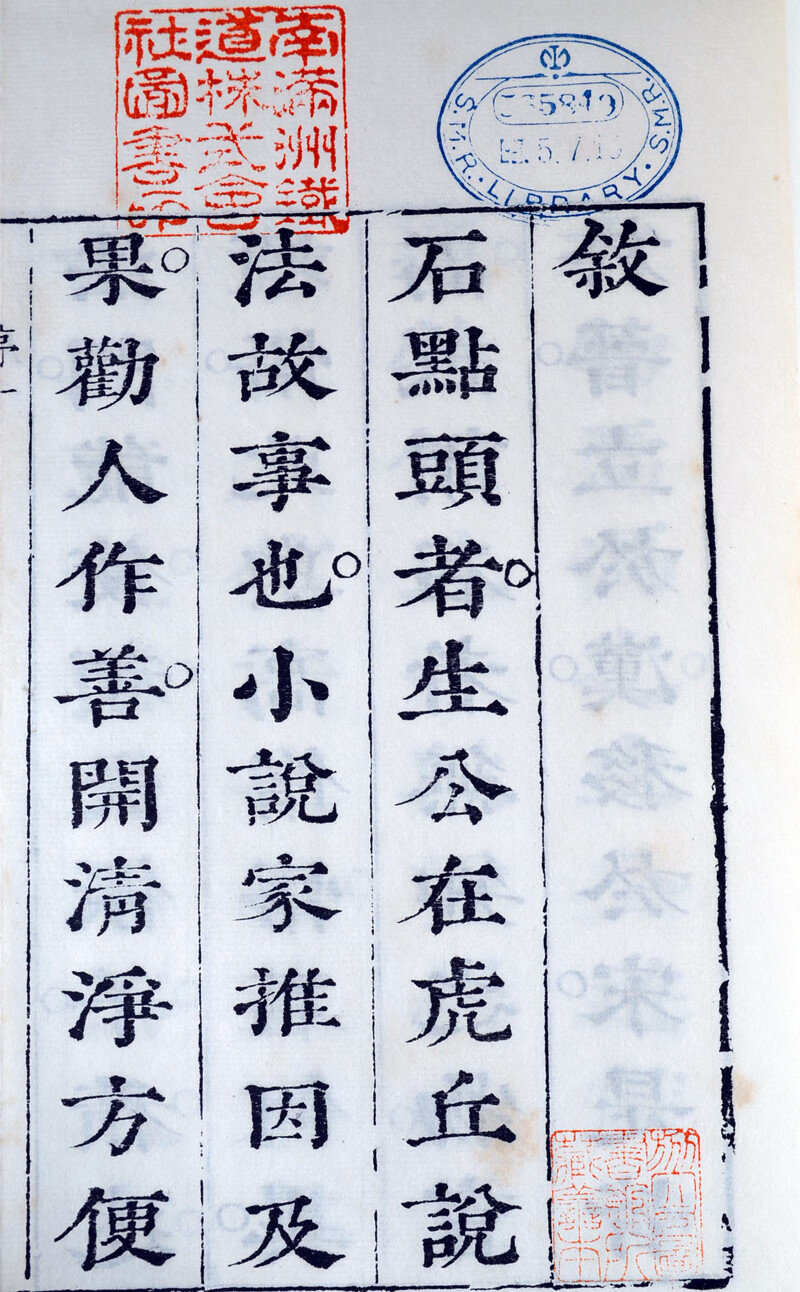 南滿洲鐵
道株式會
社圖書印
S.M.R. LIBRARY. S.M.R.
敘
石點頭者。生公在虎丘說
法故事也。小說家推因及
果。勸人作善。開淸淨方便